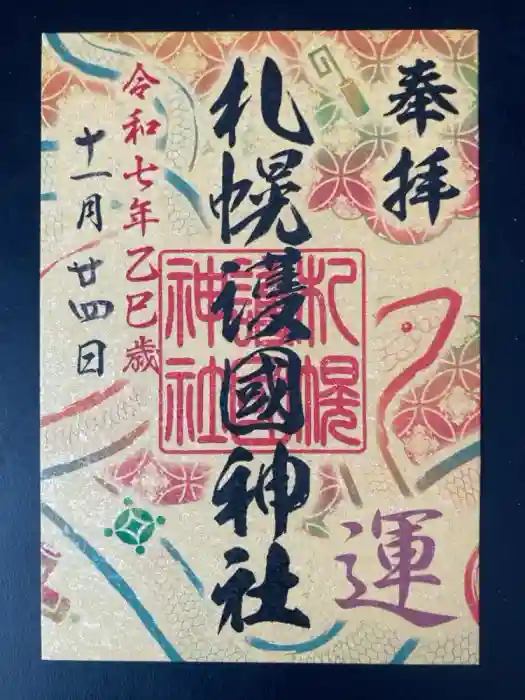 奉拝
札幌護國神社
札幌
護國
神社
令和七年乙巳歳
十一月廿四日
運